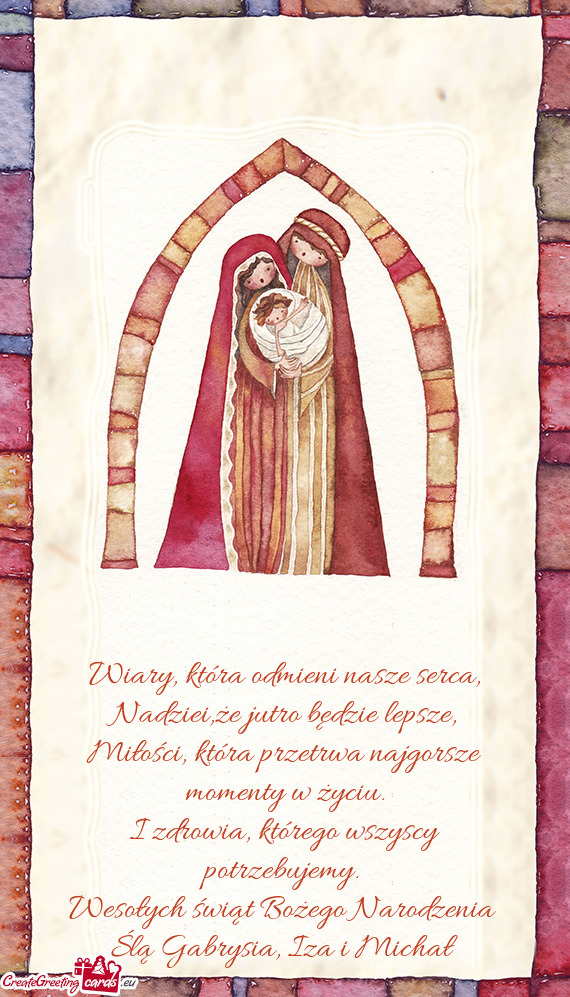 Wiary, która odmieni nasze serca,
Nadziei,że jutro będzie lepsze,
Miłości, która przetrwa najgorsze
momenty w życiu.
I zdrowia, którego wszyscy
potrzebujemy.
Wesołych świąt Bożego Narodzenia
Ślą Gabrysia, Iza i Michał
CreateGreeting cards .eu